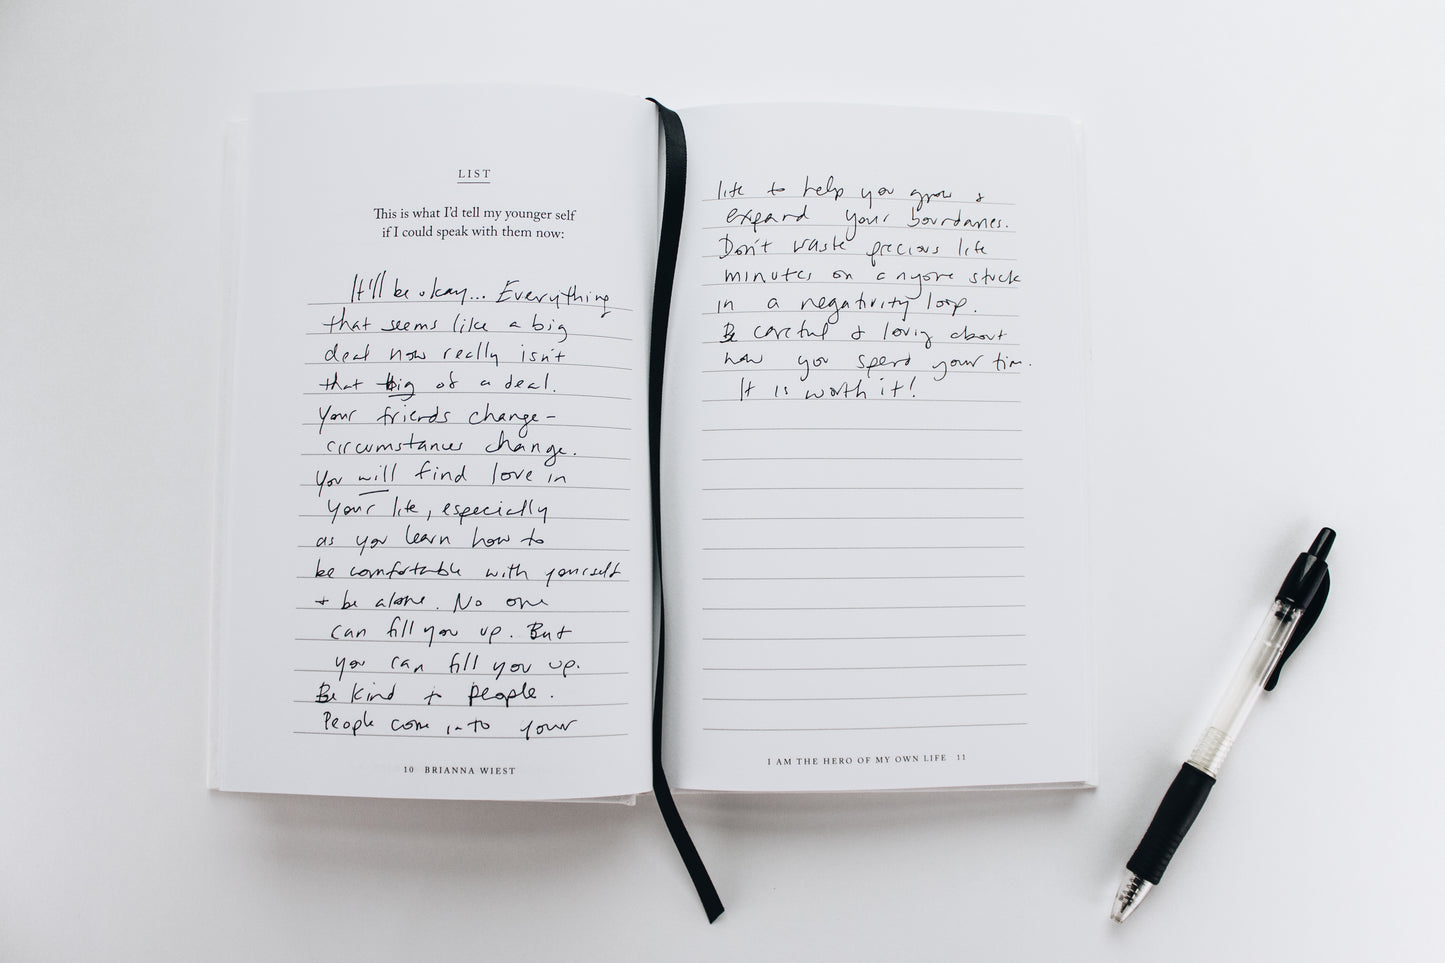 LIST
This is what I'd tell my younger self
if I could speak with them now:
It'll be okay... Everything
that seems like a big
deal now really isn't
that big of a deal.
Your friends change -
circumstances change.
You will find love in
your life, especially
as you learn how to
be comfortable with yourself
+ be alone. No one
can fill you up. But
you can fill you up.
Be kind to people.
People come into your
10 BRIANNA WIEST
life to help you grow &
expand your boundaries.
Don't waste precious life
minutes on anyone stuck
in a negativity loop.
Be careful & loving about
how you spend your time.
It is worth it!
I AM THE HERO OF MY OWN LIFE 11